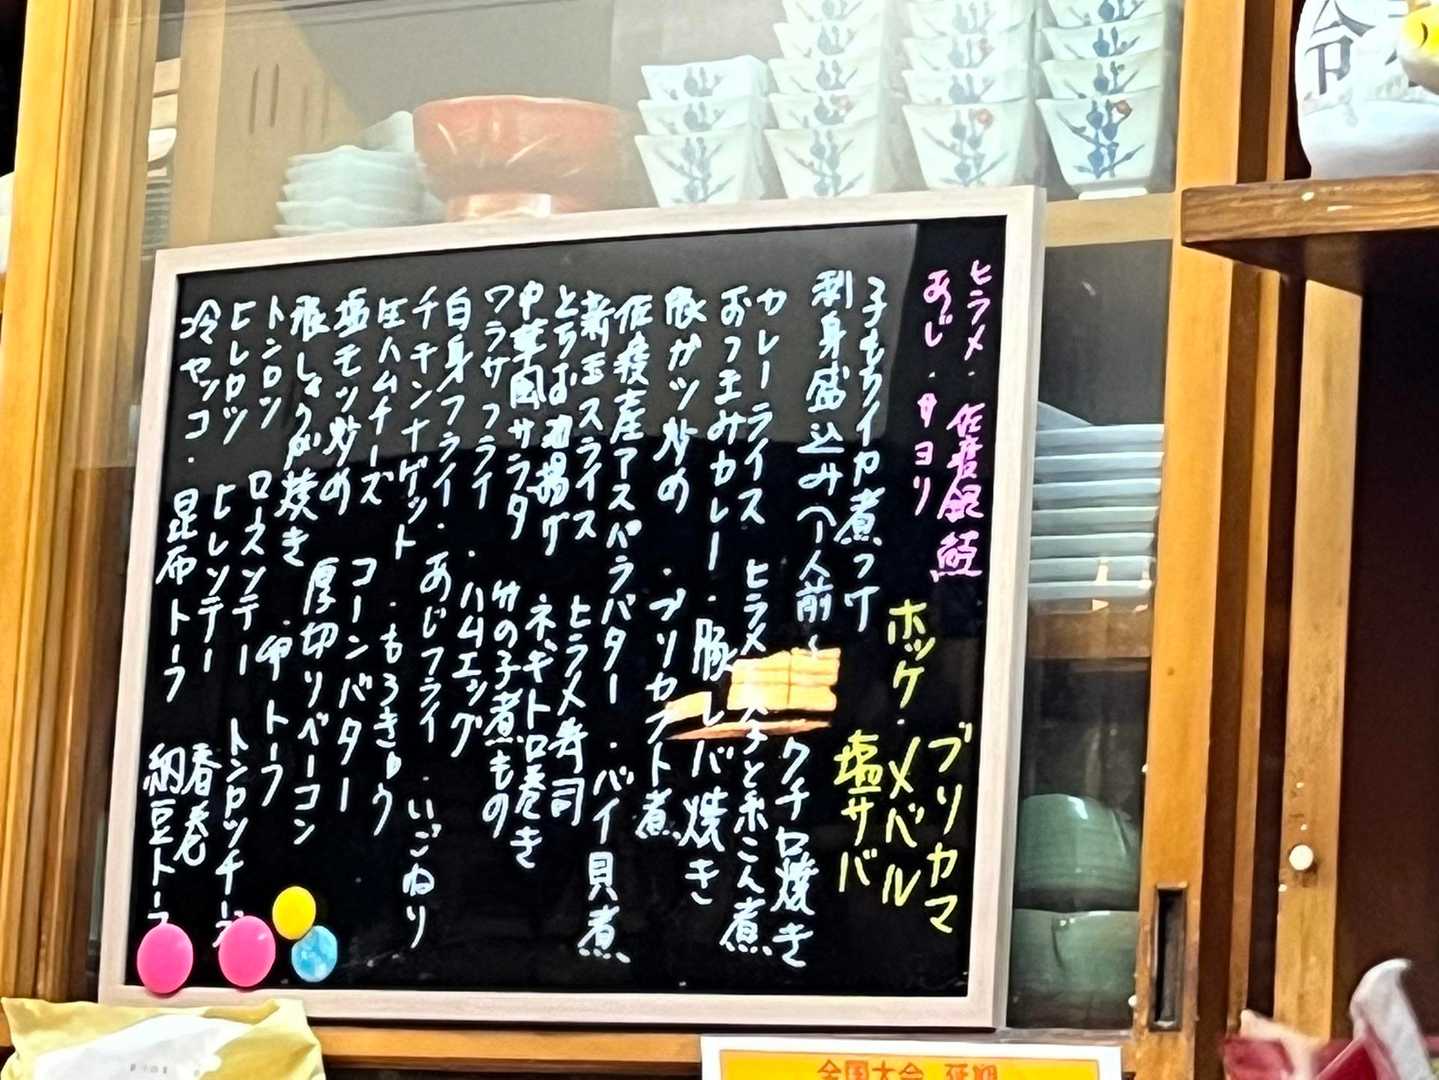 ヒラメ・佐渡銀鮭
あじ・サヨリ
ブリカマ
ホッケ・メバル
塩サバ
子もちイカ煮つけ
刺身盛込み(1人前〜
クチロ焼き
カレーライス
ヒラメ
子と糸こん煮
おつまみカレー・豚レバ焼き
豚ガツ炒め・ブリカブト煮
佐渡産アスパラバター・バイ貝煮
新玉スライス
ヒラメ寿司
とちお油揚げ
ネギトロ巻き
中華風サラダ
竹の子煮もの
ワラサフライ・ハムエッグ
白身フライ・あじフライ・いごねり
チキンナゲット・もろきゅう
生ハムチーズ
コーンバター
塩モツ炒め
厚切りベーコン
豚しょうが焼き・卵トーフ
トンロツ
ロースンテー
トンロッチーズ
ヒレロツ
ヒレンテー
春巻
冷ヤッコ・昆布トーフ
納豆トーフ
全国大会 延期
令